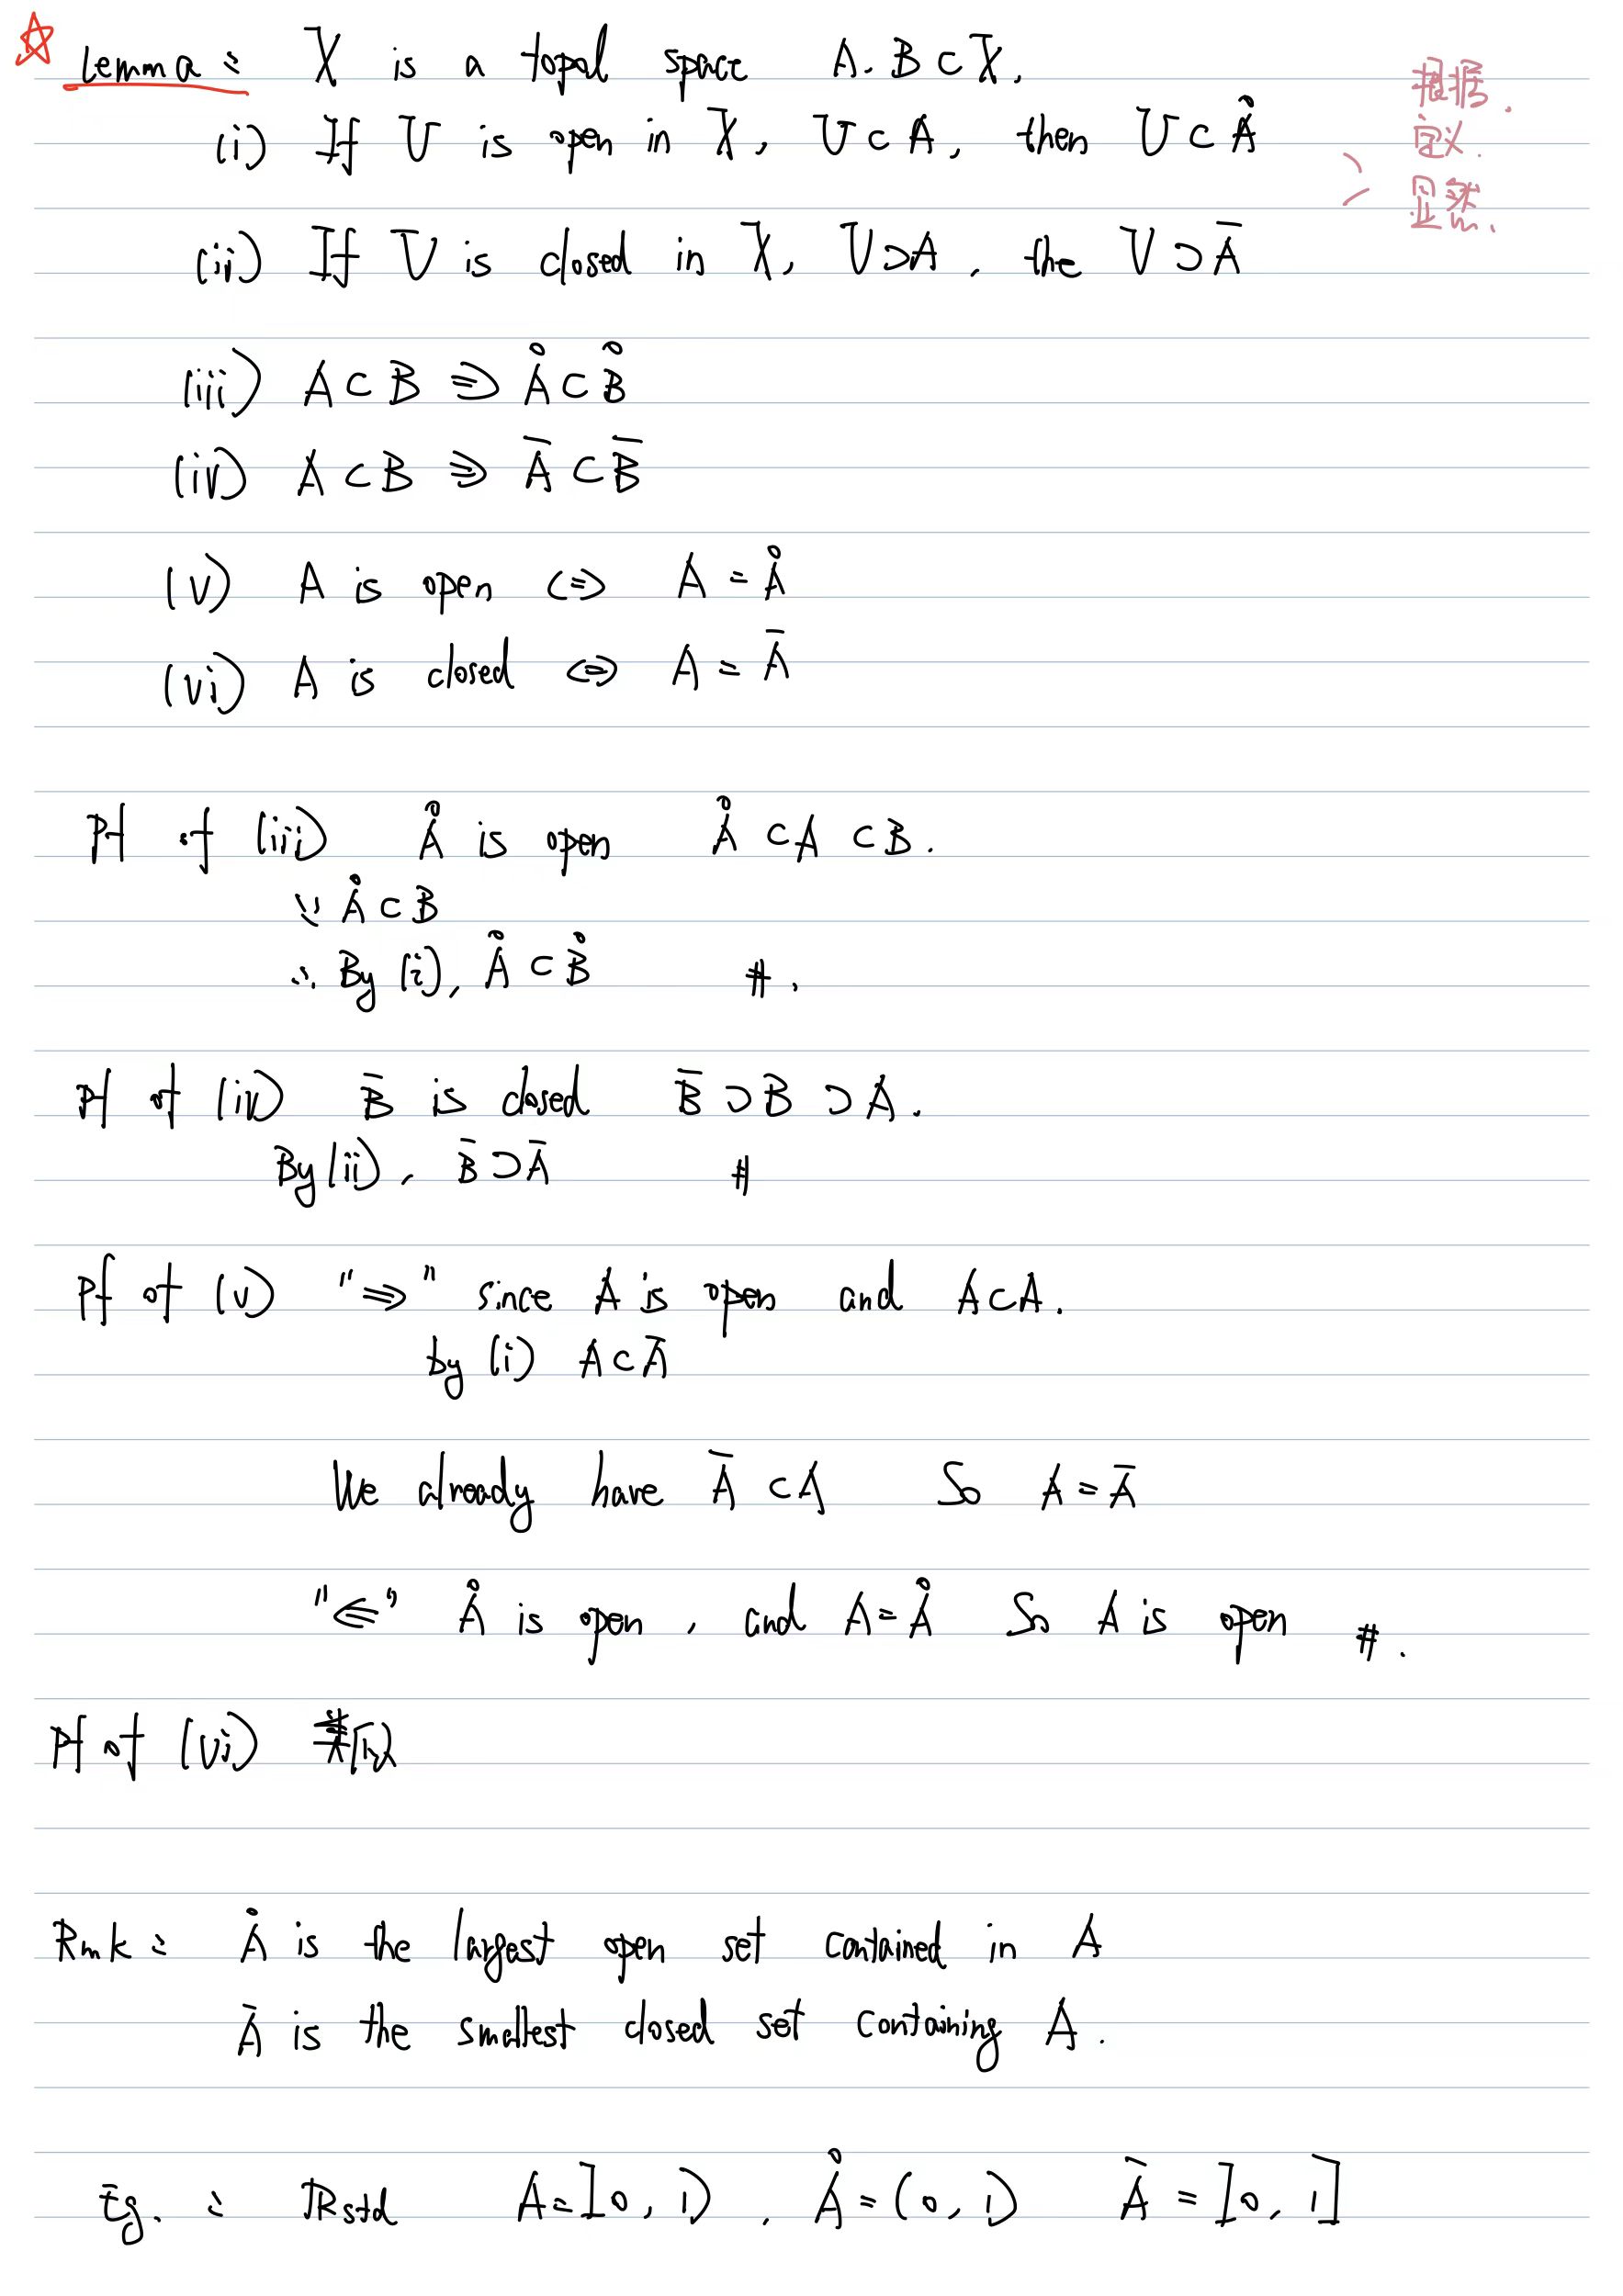 Lemma: X is a topol space A. B ⊂ X.
(i) If U is open in X, U ⊂ A, then U ⊂ Å
根据.
定义.
显然.
(ii) If V is closed in X, V ⊃ A, the V ⊃ Ā
(iii) A ⊂ B ⇒ Å ⊂ B̊
(iv) A ⊂ B ⇒ Ā ⊂ B̄
(v) A is open ⇔ A = Å
(vi) A is closed ⇔ A = Ā
Pf of (iii) Å is open Å ⊂ A ⊂ B.
∵ Å ⊂ B
∴ By (i), Å ⊂ B̊ #.
Pf of (iv) B̄ is closed B̄ ⊃ B ⊃ A.
By (ii), B̄ ⊃ Ā #
Pf of (v) "⇒" since A is open and A ⊂ A.
by (i) A ⊂ Ā
We already have Ā ⊂ A So A = Ā
"⇐" Å is open, and A = Å So A is open #.
Pf of (vi) 类似
Rmk: Å is the largest open set contained in A
Ā is the smallest closed set containing A.
Eg.: ℝstd A = [0, 1), Å = (0, 1) Ā = [0, 1]